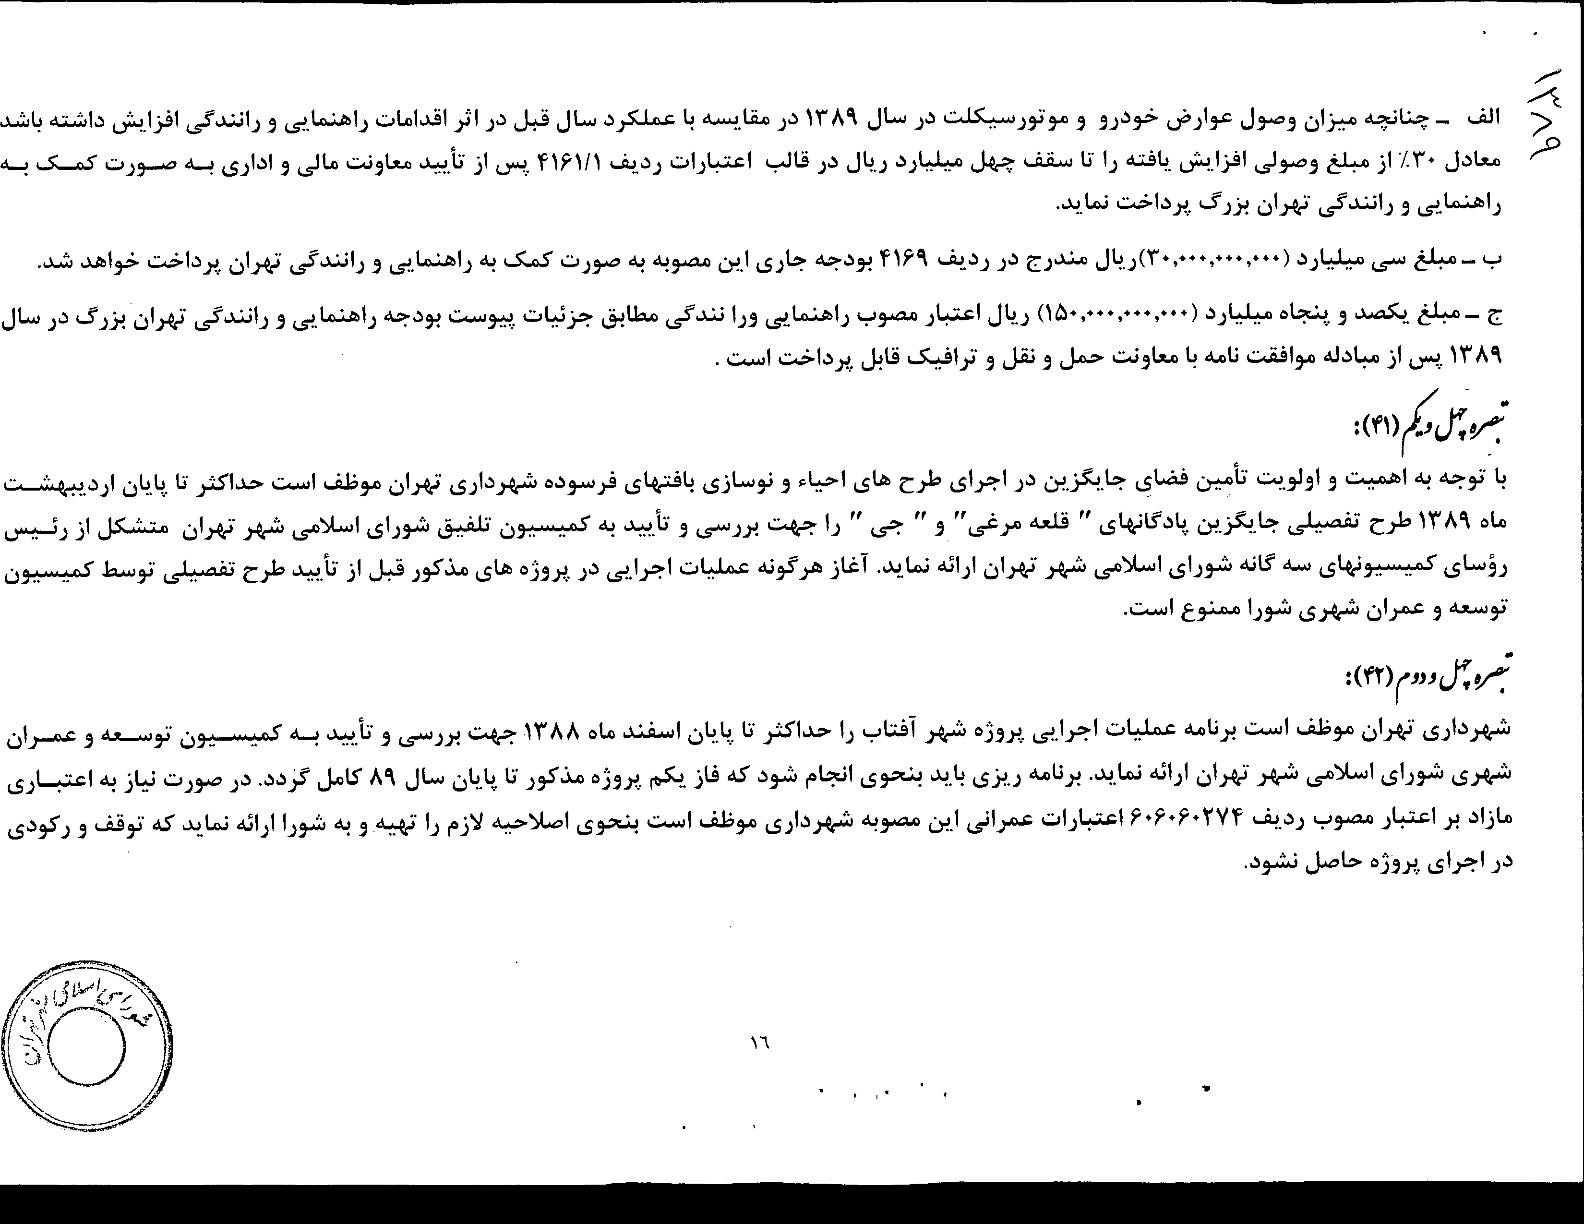 ۱۳۸۹
الف – چنانچه میزان وصول عوارض خودرو و موتورسیکلت در سال ۱۳۸۹ در مقایسه با عملکرد سال قبل در اثر اقدامات راهنمایی و رانندگی افزایش داشته باشد
معادل ۳۰٪ از مبلغ وصولی افزایش یافته را تا سقف چهل میلیارد ریال در قالب اعتبارات ردیف ۴۱۶۱/۱ پس از تأیید معاونت مالی و اداری به صورت کمک به
راهنمایی و رانندگی تهران بزرگ پرداخت نماید.
ب – مبلغ سی میلیارد (۳۰,۰۰۰,۰۰۰,۰۰۰)ریال مندرج در ردیف ۴۱۶۹ بودجه جاری این مصوبه به صورت کمک به راهنمایی و رانندگی تهران پرداخت خواهد شد.
ج – مبلغ یکصد و پنجاه میلیارد (۱۵۰,۰۰۰,۰۰۰,۰۰۰) ریال اعتبار مصوب راهنمایی ورا نندگی مطابق جزئیات پیوست بودجه راهنمایی و رانندگی تهران بزرگ در سال
۱۳۸۹ پس از مبادله موافقت نامه با معاونت حمل و نقل و ترافیک قابل پرداخت است .
تبصره چهل و یکم (۴۱):
با توجه به اهمیت و اولویت تأمین فضای جایگزین در اجرای طرح های احیاء و نوسازی بافتهای فرسوده شهرداری تهران موظف است حداکثر تا پایان اردیبهشت
ماه ۱۳۸۹ طرح تفصیلی جایگزین پادگانهای " قلعه مرغی" و " جی " را جهت بررسی و تأیید به کمیسیون تلفیق شورای اسلامی شهر تهران متشکل از رئیس
رؤسای کمیسیونهای سه گانه شورای اسلامی شهر تهران ارائه نماید. آغاز هرگونه عملیات اجرایی در پروژه های مذکور قبل از تأیید طرح تفصیلی توسط کمیسیون
توسعه و عمران شهری شورا ممنوع است.
تبصره چهل و دوم (۴۲):
شهرداری تهران موظف است برنامه عملیات اجرایی پروژه شهر آفتاب را حداکثر تا پایان اسفند ماه ۱۳۸۸ جهت بررسی و تأیید به کمیسیون توسعه و عمران
شهری شورای اسلامی شهر تهران ارائه نماید. برنامه ریزی باید بنحوی انجام شود که فاز یکم پروژه مذکور تا پایان سال ۸۹ کامل گردد. در صورت نیاز به اعتباری
مازاد بر اعتبار مصوب ردیف ۶۰۶۰۶۰۲۷۴ اعتبارات عمرانی این مصوبه شهرداری موظف است بنحوی اصلاحیه لازم را تهیه و به شورا ارائه نماید که توقف و رکودی
در اجرای پروژه حاصل نشود.
شورای اسلامی شهر تهران
۱۶